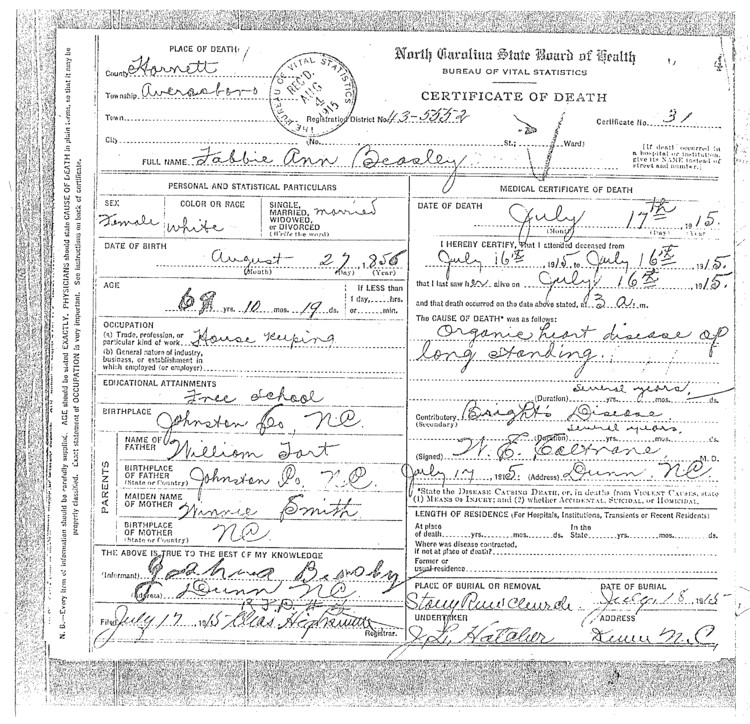 PLACE OF DEATH
County Harnett
Township Averasboro
Town
City
THE BUREAU OF VITAL STATISTICS
REC'D.
AUG
4
1915
North Carolina State Board of Health
BUREAU OF VITAL STATISTICS
CERTIFICATE OF DEATH
Registration District No. 43-5552
Certificate No. 31
(No. St.; Ward)
[If death occurred in
a hospital or institution,
give its NAME instead of
street and number.]
FULL NAME Tabbie Ann Beasley
PERSONAL AND STATISTICAL PARTICULARS
SEX
Female
COLOR OR RACE
white
SINGLE,
MARRIED, married
WIDOWED,
or DIVORCED
(Write the word)
DATE OF BIRTH
August 27, 1856
(Month) (Day) (Year)
AGE
yrs. 10 mos. 19 ds.
If LESS than
1 day, hrs.
or min.
OCCUPATION
(a) Trade, profession, or
particular kind of work House Keeping
(b) General nature of industry,
business, or establishment in
which employed (or employer)
EDUCATIONAL ATTAINMENTS
Free School
BIRTHPLACE
Johnston Co, N.C.
PARENTS
NAME OF
FATHER William Tart
BIRTHPLACE
OF FATHER Johnston Co, N.C.
(State or Country)
MAIDEN NAME
OF MOTHER Winnie Smith
BIRTHPLACE
OF MOTHER NC
(State or Country)
THE ABOVE IS TRUE TO THE BEST OF MY KNOWLEDGE
(Informant) Joshua
(Address) Dunn NC
Filed July 17 1915 Chas
Registrar.
MEDICAL CERTIFICATE OF DEATH
DATE OF DEATH
July 17th 1915.
(Month) (Day) Year
I HEREBY CERTIFY, That I attended deceased from
July 16th 1915 to July 16th 1915.
that I last saw her alive on July 16th 1915.
and that death occurred on the date above stated, at 3 a. m.
The CAUSE OF DEATH* was as follows:
Organic heart disease of
long standing
several years.
(Duration) yrs. mos. ds.
Contributory Bright's Disease
(Secondary) several years.
(Duration) yrs. mos. ds.
(Signed) W. E. Coltrane M. D.
July 17, 1915 (Address) Dunn, NC.
*State the DISEASE CAUSING DEATH, or, in deaths from VIOLENT CAUSES, state
(1) MEANS OF INJURY; and (2) whether ACCIDENTAL, SUICIDAL, or HOMICIDAL.
LENGTH OF RESIDENCE (For Hospitals, Institutions, Transients or Recent Residents)
At place In the
of death yrs. mos. ds. State yrs. mos. ds.
Where was disease contracted,
if not at place of death?
Former or
usual residence
PLACE OF BURIAL OR REMOVAL
Stony Run Church
DATE OF BURIAL
July 18 1915
UNDERTAKER
J. L. Hatcher
ADDRESS
Dunn N.C
N. B.—Every item of information should be carefully supplied. AGE should be stated EXACTLY. PHYSICIANS should state CAUSE OF DEATH in plain terms, so that it may be
properly classified. Exact statement of OCCUPATION is very important. See instructions on back of certificate.